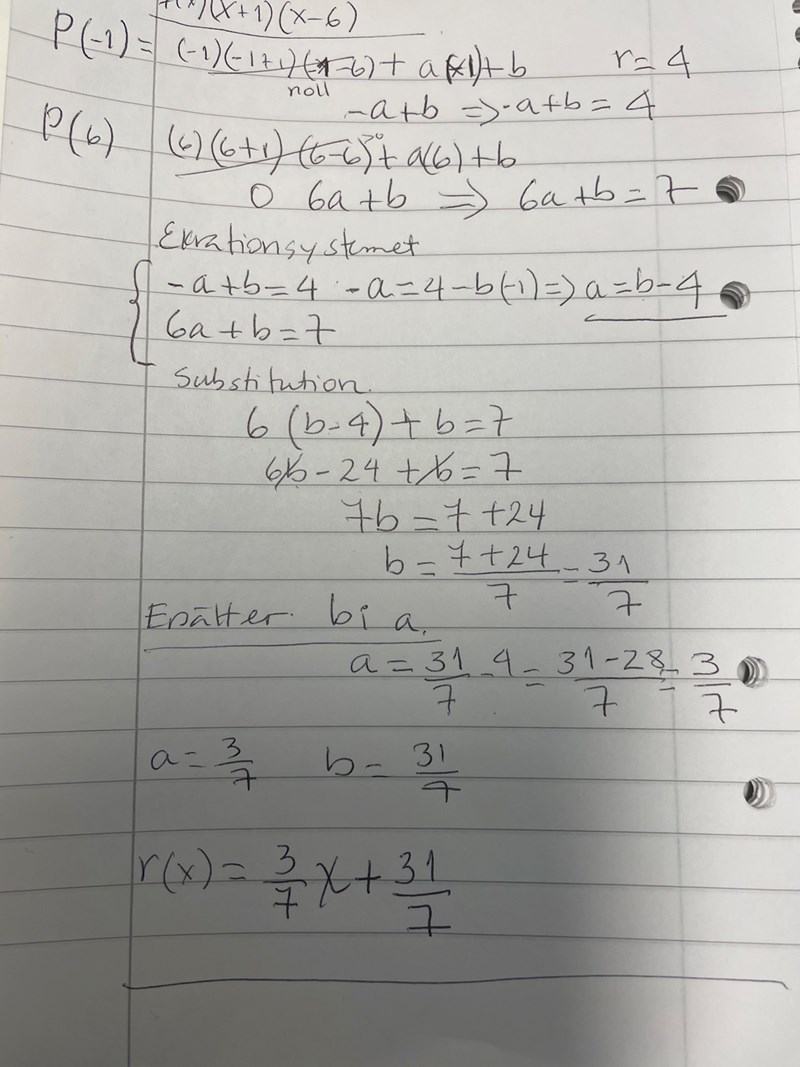 (x)(x+1)(x-6)
P(-1) = (-1)(-1+1)(-1-6) + a(-1)+b r=4
noll
-a+b => -a+b = 4
P(6) (6)(6+1)(6-6)=0 + a(6)+b
0 6a+b => 6a+b = 7
Ekvationsystemet
{ -a+b=4 -a=4-b(-1)=> a=b-4
6a+b=7
Substitution.
6(b-4)+b=7
6b-24+b=7
7b=7+24
b= 7+24/7 = 31/7
Ersätter b i a.
a= 31/7 -4 = 31-28/7 = 3/7
a= 3/7 b= 31/7
r(x)= 3/7 x + 31/7